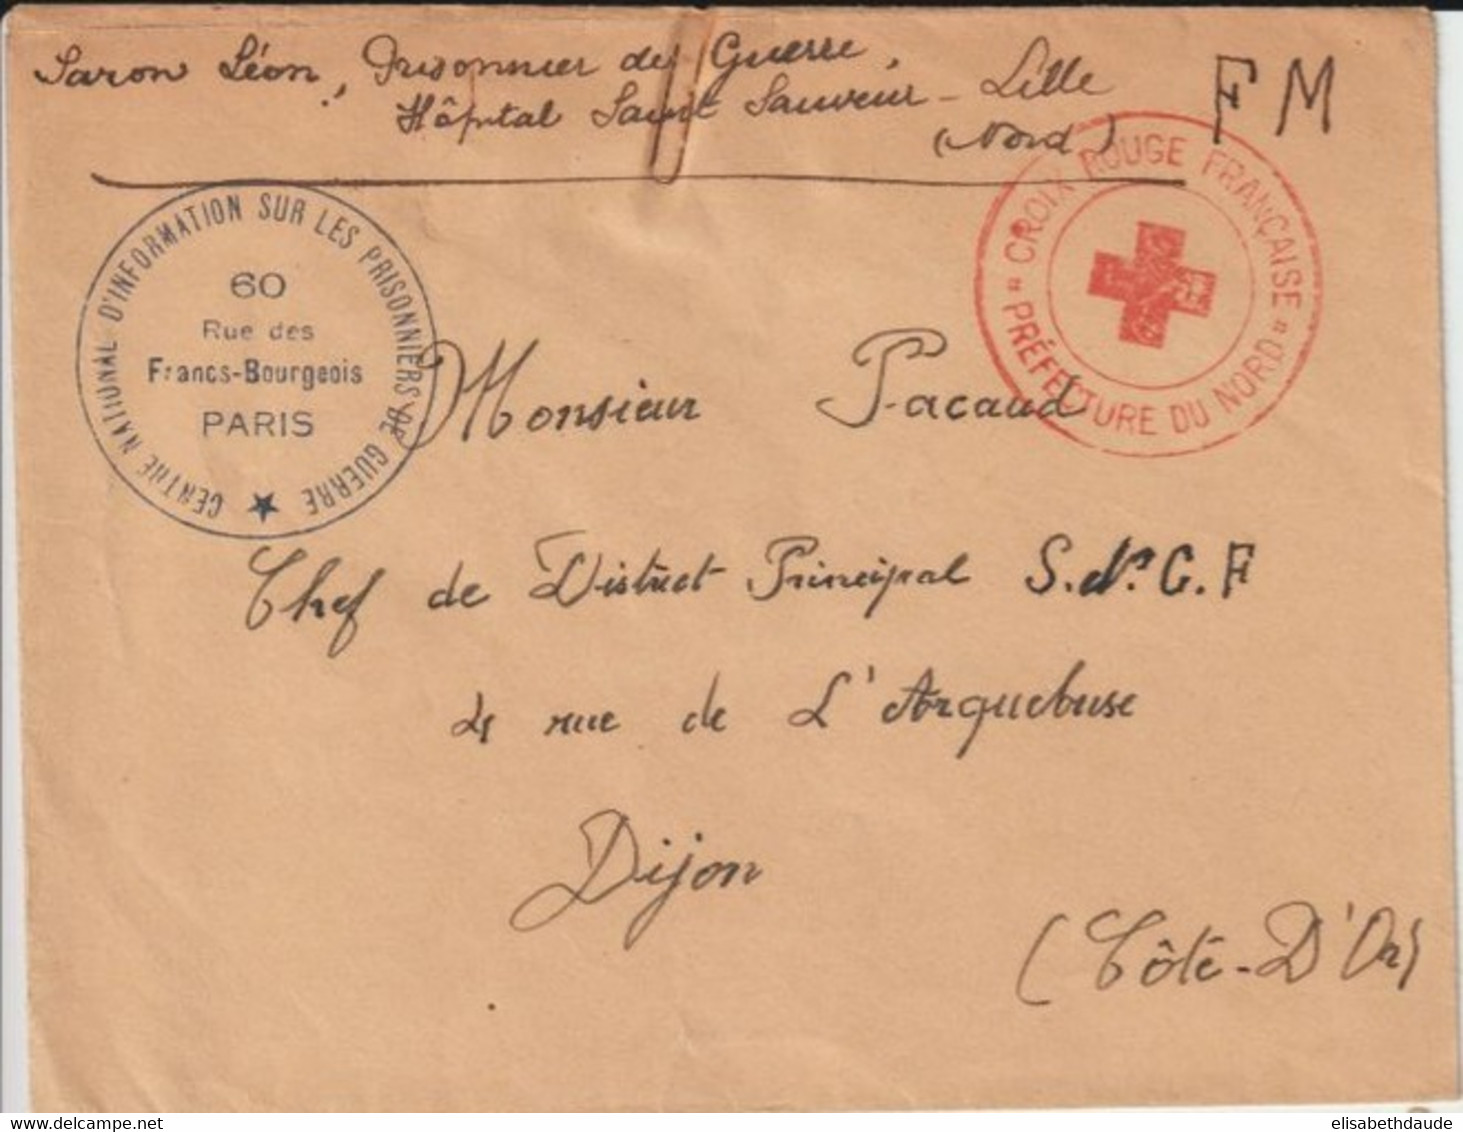 Saron Léon, Prisonnier de Guerre,
Hôpital Saint Sauveur - Lille
(Nord)
F M
CENTRE NATIONAL D'INFORMATION SUR LES PRISONNIERS DE GUERRE
60
Rue des
Francs-Bourgeois
PARIS
"CROIX ROUGE FRANÇAISE"
PRÉFECTURE DU NORD
Monsieur Pacaud
Chef de District Principal S.N.C.F
4 rue de L'Arquebuse
Dijon
(Côte-D'Or)
elisabethdaude